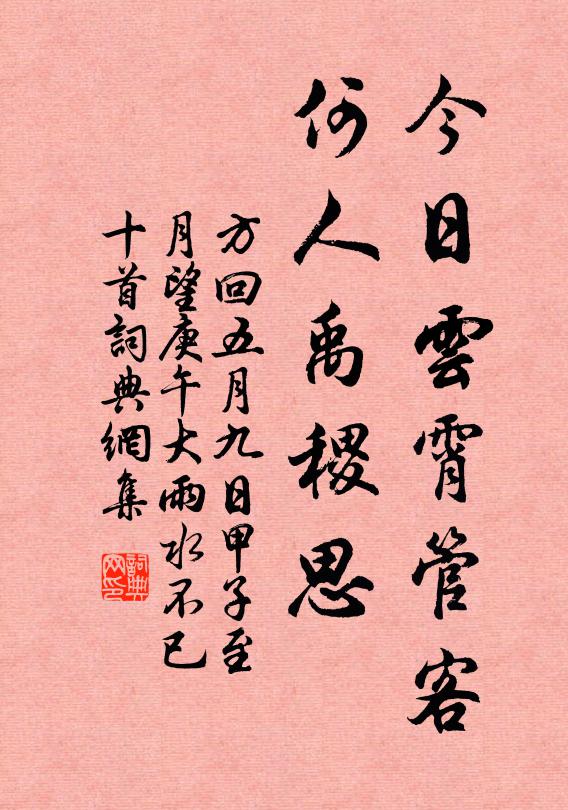 今日雲霄管客
何人禹稷思
方回五月九日甲子至
月望庚午大雨水不已
十首詞典網集
詞典网印